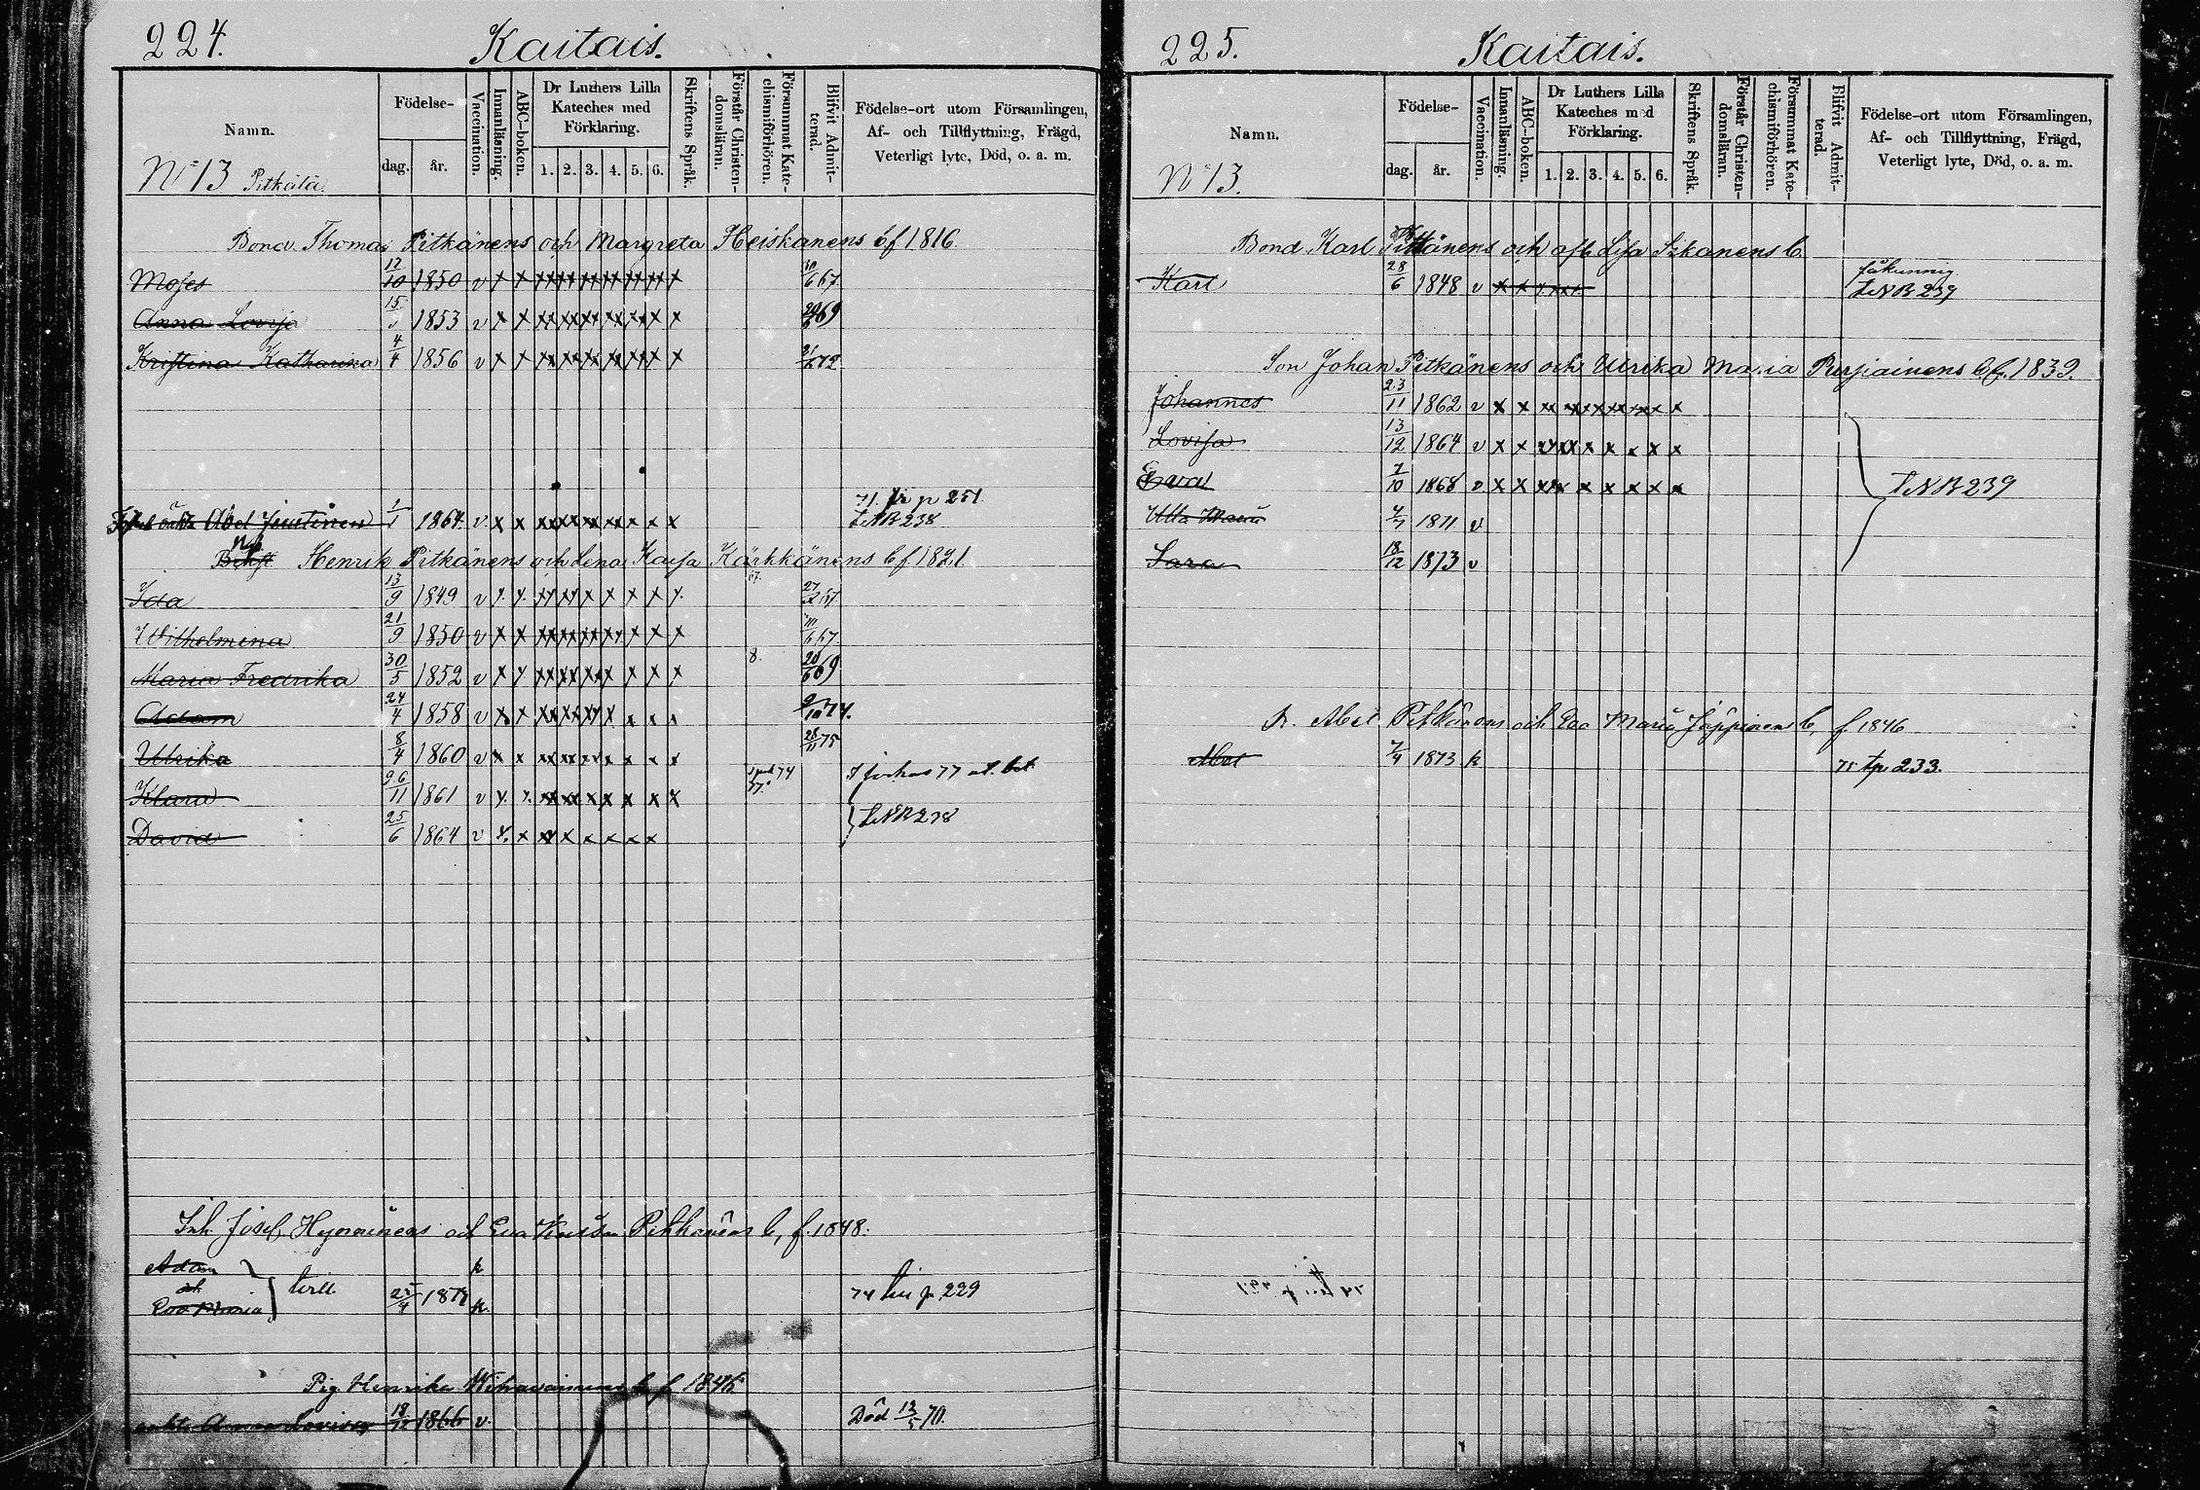 224. Kaitais.
Namn. Födelse- dag. år. Vaccination. Innanläsning. ABC-boken. Dr Luthers Lilla Kateches med Förklaring. 1. 2. 3. 4. 5. 6. Skriftens Språk. Förstår Christendomsläran. Försummat Katechismiförhören. Blifvit Admitterad. Födelse-ort utom Församlingen, Af- och Tillflyttning, Frägd, Veterligt lyte, Död, o. a. m.
No 13 Pitkälä.
Bond. Thomas Pitkänens och Margreta Heiskanens b f 1816.
Moses 12/10 1850 v x x xx xx xx xx xx xx x 67.
Anna Lovisa 15 1853 v x x xx xx xx xx xx xx x 69
Kristina Katharina 4/4 1856 v x x xx xx xx xx xx xx x 72
71. fr p 251.
Abel 1864 v x x xx xx xx x x x x LNB 238
Henrik Pitkänens och Lena Kaisa Kärkkänens b f 1821
Ida 13/9 1849 v x x xx xx x x x x x 27 67
Wilhelmina 21/9 1850 v x x xx xx xx xx x x x 67.
Maria Fredrika 30/5 1852 v x x xx xx xx x x x x 8. 20/6 69
Adam 24/4 1858 v x x xx xx xx x x x x 74.
Ulrika 8/4 1860 v x x xx xx xx x x x x 28/11 75
Klara 26/11 1861 v x x xx xx x x x x x 74 77. 77
David 25/6 1864 v x x xx x x x x x LNB 238
Inh. Josef och Eva b, f. 1848.
Adam k
och tvill.
Eva Maria 187 k. 74 p. 229
Pig Henrika b f
Anna Lovisa 18 1866 v. Död 13/5 70.
225. Kaitais.
Namn. Födelse- dag. år. Vaccination. Innanläsning. ABC-boken. Dr Luthers Lilla Kateches med Förklaring. 1. 2. 3. 4. 5. 6. Skriftens Språk. Förstår Christendomsläran. Försummat Katechismiförhören. Blifvit Admitterad. Födelse-ort utom Församlingen, Af- och Tillflyttning, Frägd, Veterligt lyte, Död, o. a. m.
No 13.
Bond. Karl Pitkänens och afl. Lisa b.
Karl 28/6 1848 v x x x xx x LNB 239
Son Johan Pitkänens och Ulrika Maria Purjiainens b f. 1839.
Johannes 23/11 1862 v x x xx xx xx xx xx x x
Lovisa 13/12 1864 v x x xx xx x x x x x
Eva 7/10 1868 v x x xx x x x x x x LNB 239
Ulla Maria 4/7 1871 v
Sara 18/12 1873 v
Abel Pitkänens och Eva Maria Jäppinens b, f 1846
Abel 7/4 1873 k 75 tp 233.